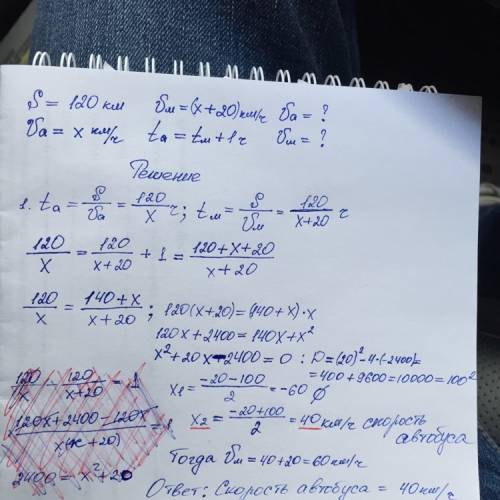 S = 120 км   Vм = (x+20) км/ч   Va = ?
Va = x км/ч   ta = tм + 1ч   Vм = ?
Решение
1. ta = S/Va = 120/x ч; tм = S/Vм = 120/(x+20) ч
120/x = 120/(x+20) + 1 = (120+x+20)/(x+20)
120/x = (140+x)/(x+20); 120(x+20) = (140+x)·x
120x + 2400 = 140x + x²
x² + 20x - 2400 = 0 : D = (20)² - 4·(-2400) =
= 400 + 9600 = 10000 = 100²
120/x - 120/(x+20) = 1
x1 = (-20-100)/2 = -60 ∅
(120x + 2400 - 120x)/(x(x+20)) = 1
x2 = (-20+100)/2 = 40 км/ч скорость
автобуса
2400 = x² + 20
Тогда Vм = 40+20 = 60 км/ч
Ответ: Скорость автобуса = 40 км/ч